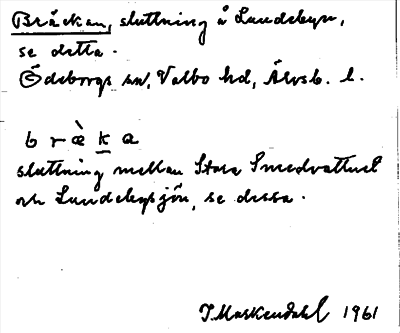 Bräckan, sluttning å Lundebyn,
se detta.
Ödeborgs sn, Valbo hd, Älvsb. l.
b r æ̀ k a
sluttning mellan Stora Smedvattnet
och Lundebysjön, se dessa.
J. Maskendahl 1961